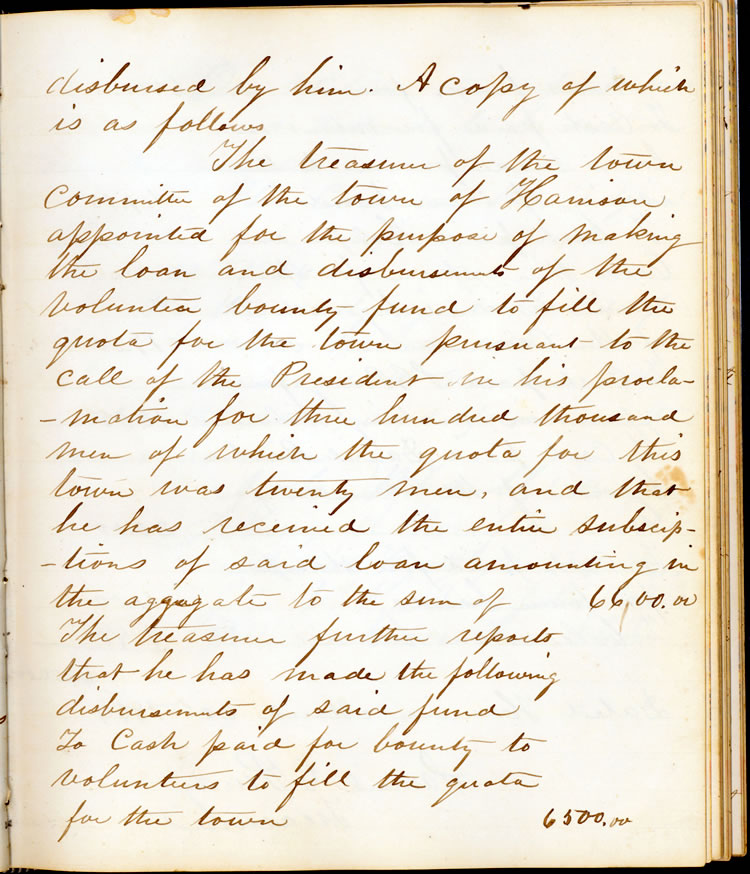 disbursed by him. A copy of which
is as follows
The treasurer of the town
committee of the town of Harrison
appointed for the purpose of making
the loan and disbursements of the
volunteer bounty fund to fill the
quota for the town pursuant to the
call of the President in his procla-
-mation for three hundred thousand
men of which the quota for this
town was twenty men, and that
he has received the entire subscip-
-tions of said loan amounting in
the aggregate to the sum of 66,00.00
The treasurer further reports
that he has made the following
disbursements of said fund
To Cash paid for bounty to
volunteers to fill the quota
for the town 6500.00